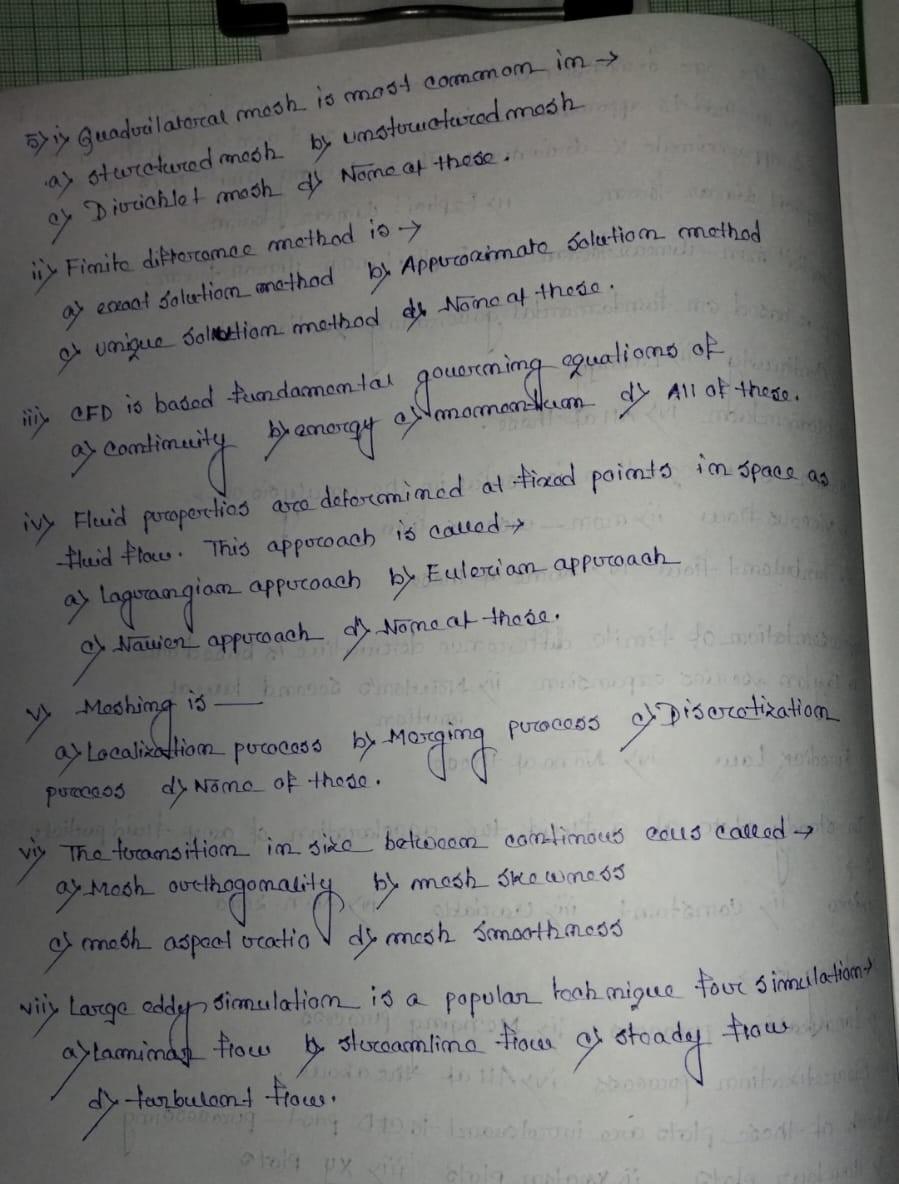 5) i) Quadrilateral mesh is most common in →
a) structured mesh b) unstructured mesh
c) Dirichlet mesh d) None of these.
ii) Finite difference method is →
a) exact solution method b) Approximate solution method
c) unique solution method d) None of these.
iii) CFD is based fundamental governing equations of
a) continuity b) energy c) momentum d) All of these.
iv) Fluid properties are determined at fixed points in space as
fluid flow. This approach is called →
a) Lagrangian approach b) Eulerian approach
c) Navier approach d) None of these.
v) Meshing is —
a) Localization process b) Merging process c) Discretization
process d) None of these.
vi) The transition in size between continous cells called →
a) Mesh orthogonality b) mesh skewness
c) mesh aspect ratio d) mesh smoothness
vii) Large eddy simulation is a popular technique for simulation →
a) Laminar flow b) streamline flow c) steady flow
d) turbulent flow.